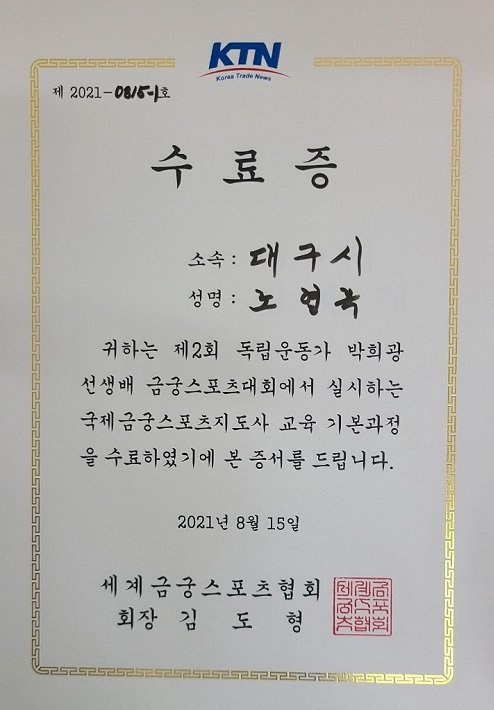 KTN
Korea Trade News
제 2021-0815-1호
수 료 증
소속 : 대구시
성명 : 노현욱
귀하는 제2회 독립운동가 박희광
선생배 금궁스포츠대회에서 실시하는
국제금궁스포츠지도사 교육 기본과정
을 수료하였기에 본 증서를 드립니다.
2021년 8월 15일
세계금궁스포츠협회
회장 김 도 형